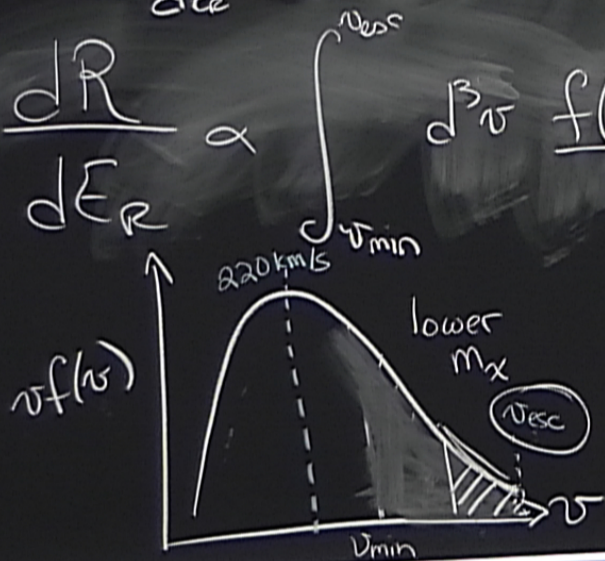 dR/dE_R ∝ ∫_{v_min}^{v_esc} d³v f(
220 km/s
lower
m_χ
v_esc
vf(v)
v
v_min